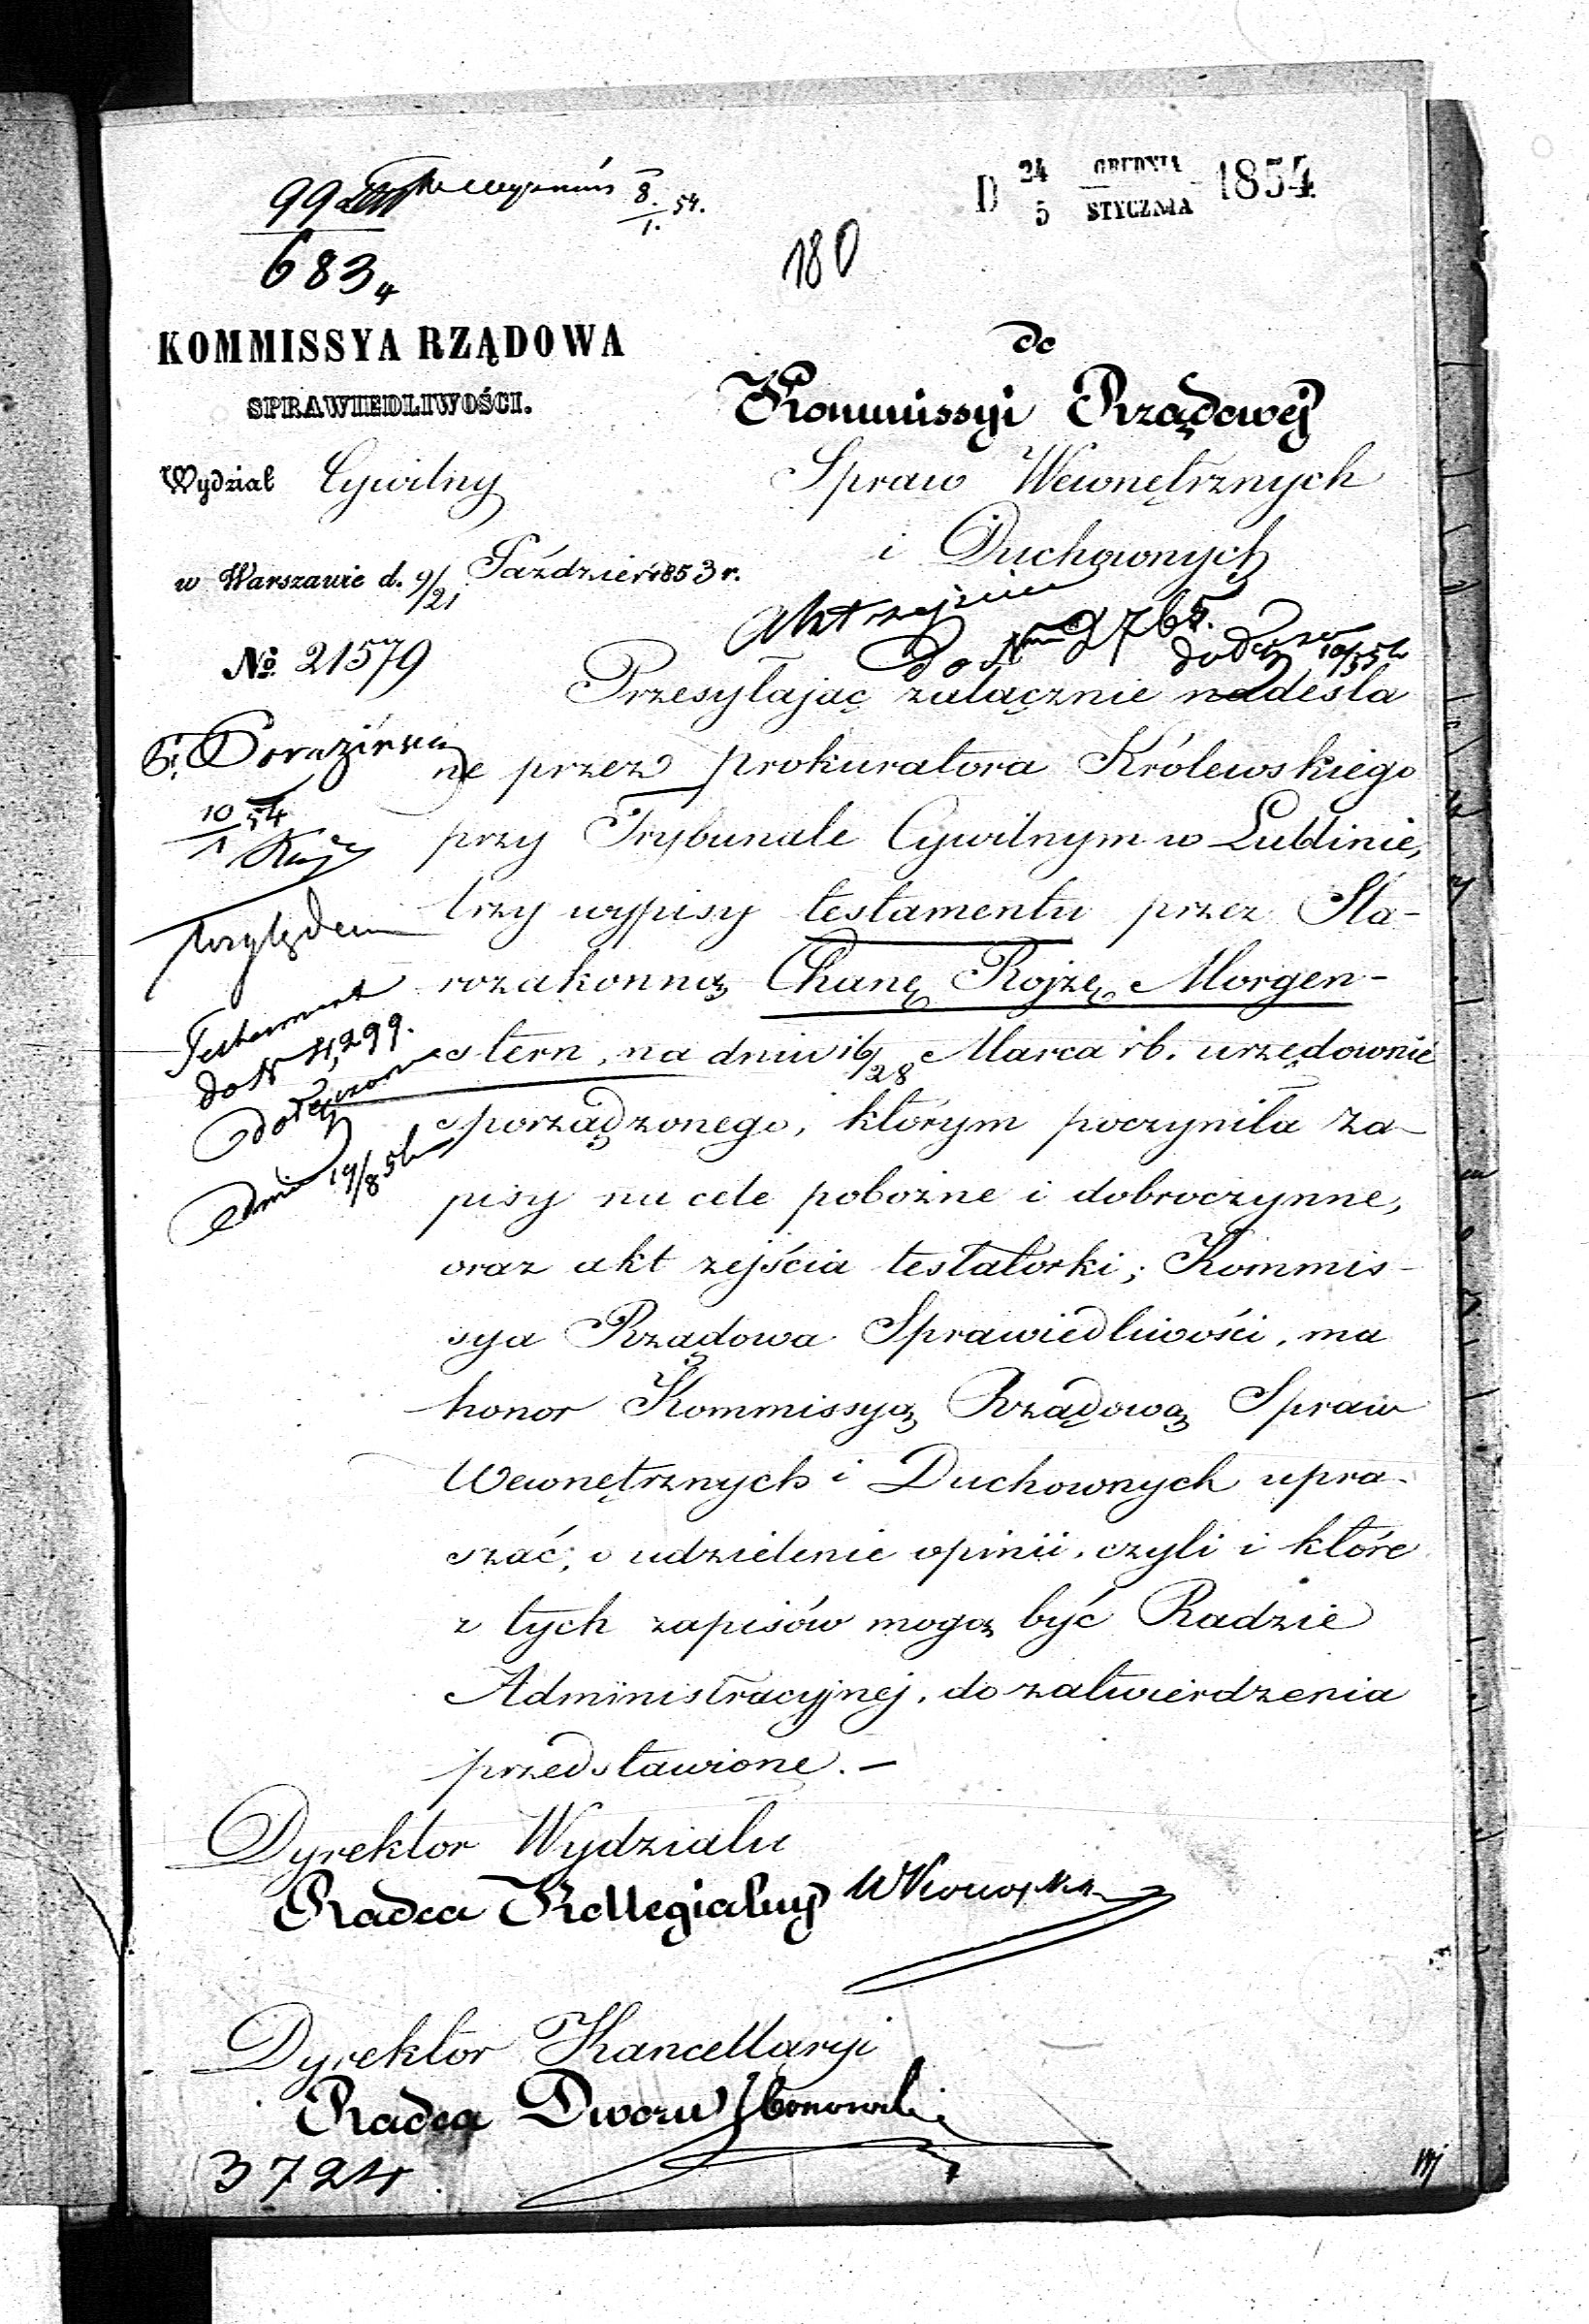 99
8/1. 54.
D 24/5 GRUDNIA/STYCZNIA 1854
683
4
180
KOMMISSYA RZĄDOWA
SPRAWIEDLIWOŚCI.
Wydział Cywilny
w Warszawie d. 9/21 Paździer 1853 r.
No. 21579
do
Kommissyi Rządowej
Spraw Wewnętrznych
i Duchownych
akt zejścia
do N 2765.
Przesyłając załącznie nadesła
ne przez prokuratora Królewskiego
przy Trybunale Cywilnym w Lublinie,
trzy wypisy testamentu przez Sta-
rozakonną Chanę Rojzę Morgen-
stern, na dniu 16/28 Marca rb. urzędownie
sporządzonego, którym poczyniła za-
pisy na cele pobożne i dobroczynne,
oraz akt zejścia testatorki; Kommis-
sya Rządowa Sprawiedliwości, ma
honor Kommissyą Rządową Spraw
Wewnętrznych i Duchownych upra-
szać, o udzielenie opinii, czyli i które
z tych zapisów mogą być Radzie
Administracyjnej, do zatwierdzenia
przedstawione. -
10/1 54
względem
Testament
do N 11,299.
dołączono
dnia 19/8 54
Dyrektor Wydziału
Radca Kollegialny
Dyrektor Kancellaryi
Radca Dworu
3724